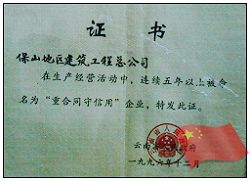 证书
保山地区建筑工程总公司
在生产经营活动中，连续五年以上被命
名为“重合同守信用”企业，特发此证。
云南省人民政府
一九九六年十二月